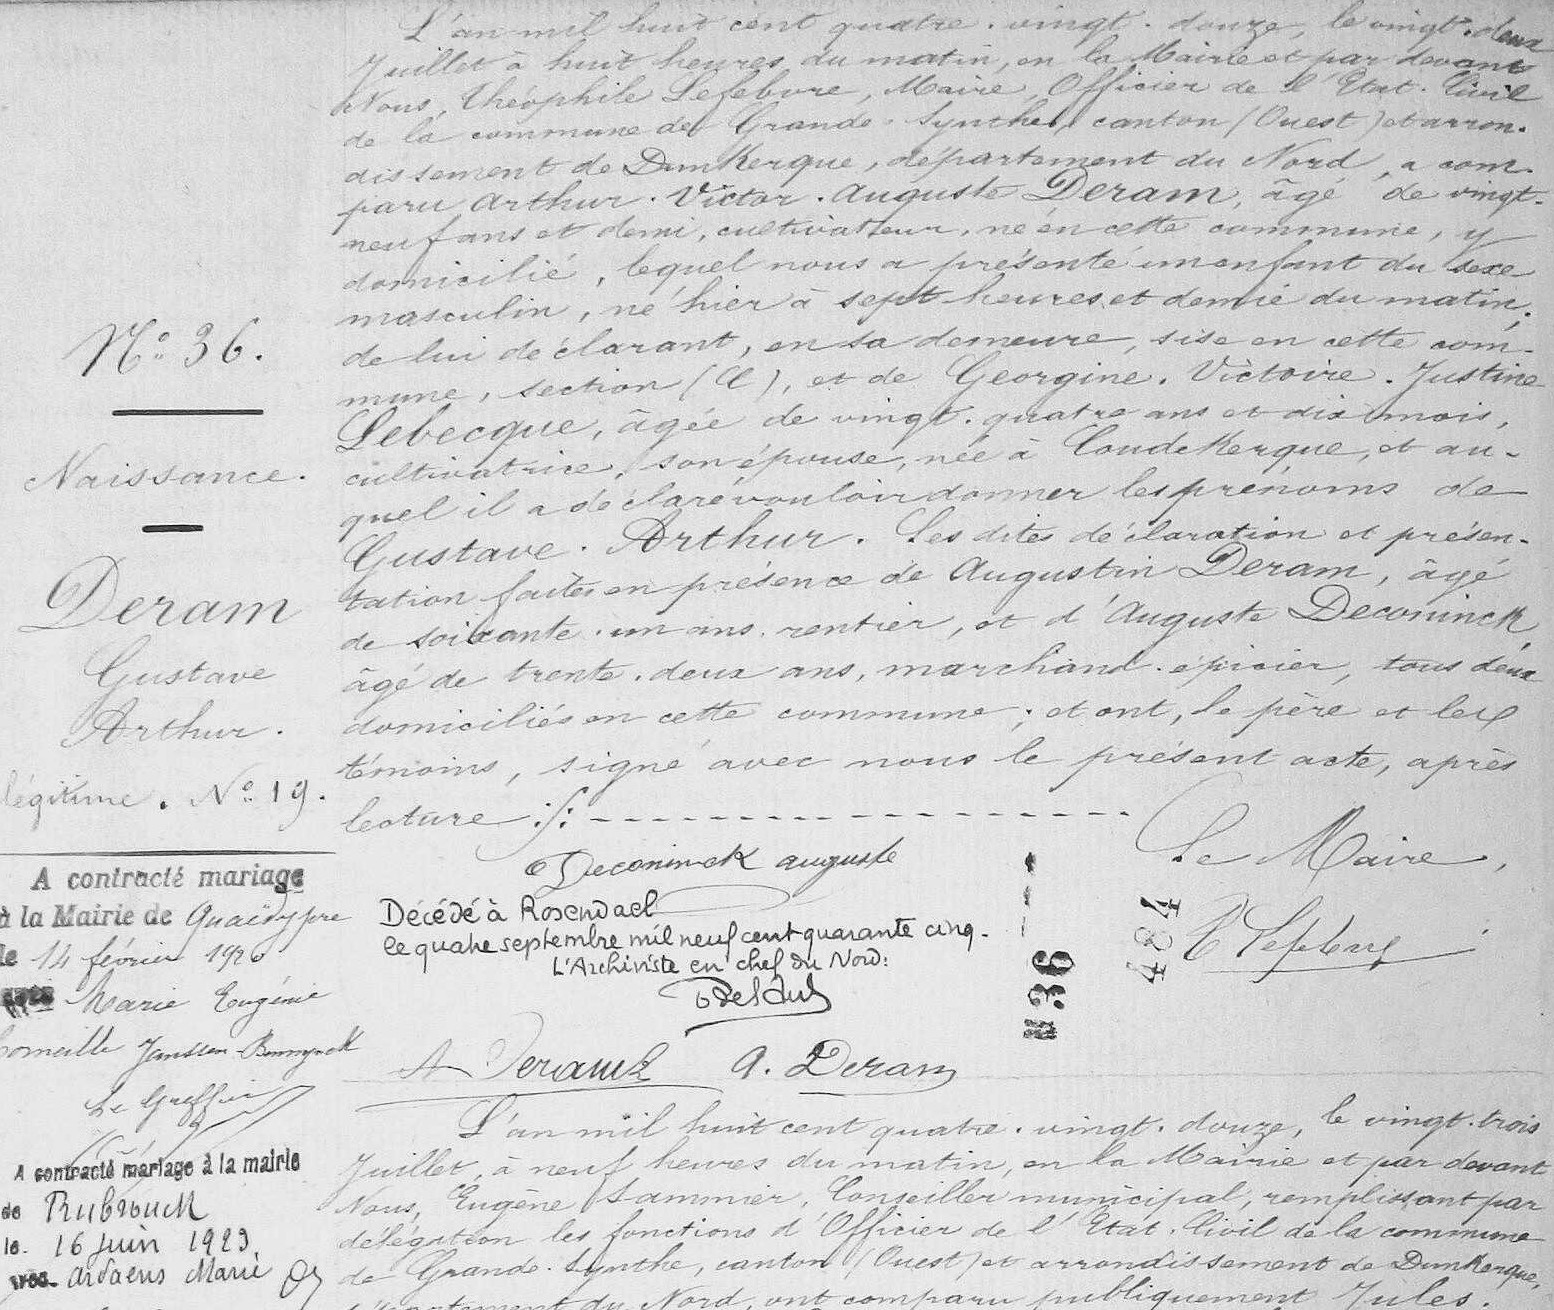 L'an mil huit cent quatre. vingt. douze, le vingt. deux
Juillet à huit heures du matin, en la Mairie et par devant
Nous, Théophile Lefebvre, Maire, Officier de l'Etat. Civil
de la commune de Grande. Synthe, canton (Ouest) et arron.
dissement de Dunkerque, département du Nord, a com.
paru Arthur. Victor. Auguste Deram, âgé de vingt.
neuf ans et demi, cultivateur, né en cette commune, y
domicilié, lequel nous a présenté un enfant du sexe
masculin, né hier à sept heures et demie du matin,
de lui déclarant, en sa demeure, sise en cette com-
mune, section (C), et de Georgine. Victoire. Justine
Lebecque, âgée de vingt. quatre ans et dix mois,
cultivatrice, son épouse, née à Coudekerque, et au-
quel il a déclaré vouloir donner les prénoms de
Gustave. Arthur. Les dites déclaration et présen-
tation faites en présence de Augustin Deram, âgé
de soixante. un ans. rentier, et d'Auguste Deconinck
âgé de trente. deux ans, marchand. épicier, tous deux
domiciliés en cette commune; et ont, le père et les
témoins, signé avec nous le présent acte, après
lecture ./. - - - - - - - - - - - - - - - -
Le Maire,
Deconinck auguste
T Lefebvre
Décédé à Rosendael
le quatre septembre mil neuf cent quarante cinq.
L'Archiviste en chef du Nord:
N 36 - - -
484
A Deram
A. Deram
N° 36.
Naissance.
Deram
Gustave
Arthur.
légitime. N° 19.
A contracté mariage
à la Mairie de Quaëdypre
le 14 février 1920
avec Marie Eugénie
Corneille Janssen-Bonnynck
Le Greffier
A contracté mariage à la mairie
de Rubrouck
le 16 Juin 1923
avec Ardaens Marie
L'an mil huit cent quatre. vingt. douze, le vingt. trois
Juillet, à neuf heures du matin, en la Mairie et par devant
Nous, Eugène Sammier, Conseiller municipal, remplissant par
délégation les fonctions d'Officier de l'Etat. Civil de la commune
de Grande. Synthe, canton (Ouest) et arrondissement de Dunkerque,
département du Nord, ont comparu publiquement Jules.